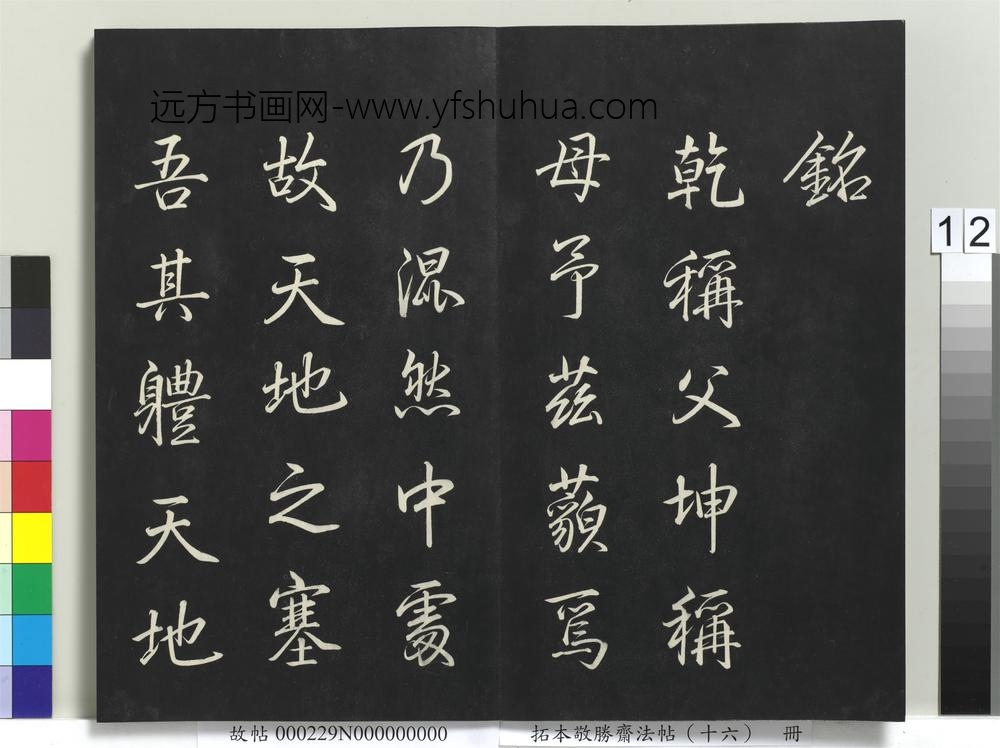 远方书画网-www.yfshuhua.com
銘
乾稱父坤稱
母予茲藐焉
乃混然中處
故天地之塞
吾其軆天地
12
故帖 000229N000000000
拓本敬勝齋法帖（十六） 冊